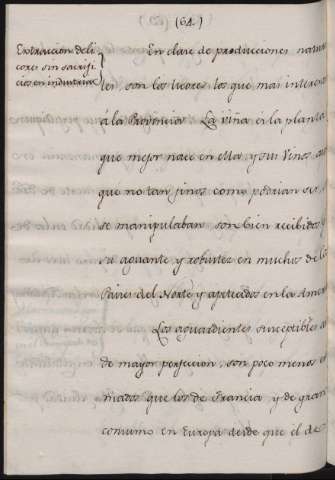 (64.)
Extraccion de li-
cores sin sacrifi-
cios en industrias
En clase de producciones natura
les, son los licores los que mas interesan
á la Provincia. La viña es la planta
que mejor nace en ellas, y sus Vinos, aun
que no tan finos como podrian ser, si
se manipulaban son bien recibidos y
su aguante y robustes en muchos de los
Paises del Norte y apeteados en la
Los aguardientes suceptibles
de mayor perfeccion, son poco menos es
timados que los de Francia, y de gran
consumo en Europa desde que el de